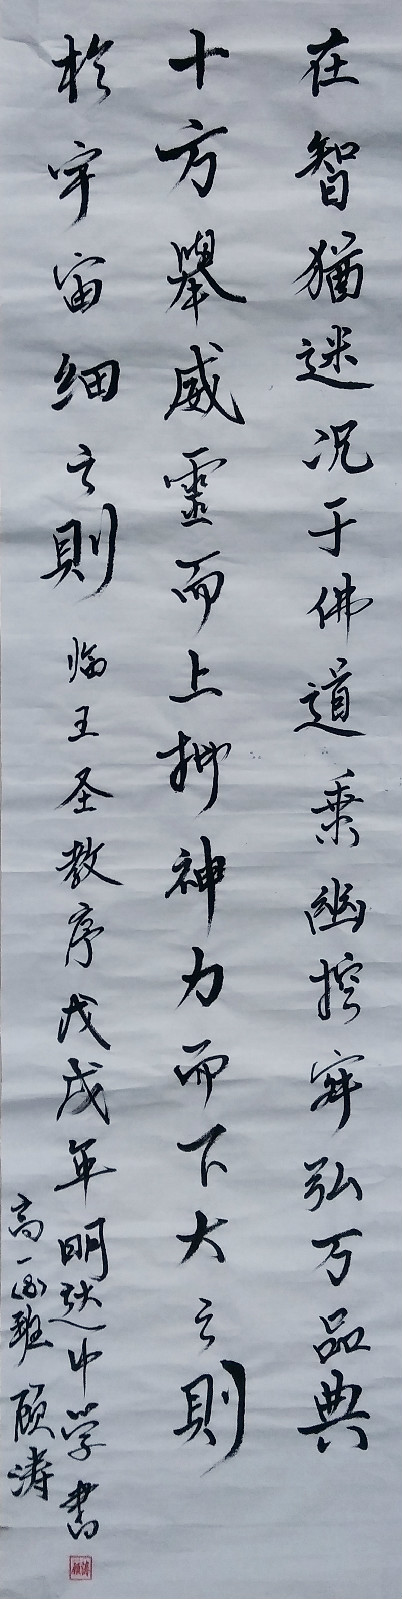 在智猶迷况于佛道乗幽控寂弘万品典
十方舉威靈而上抑神力而下大之則
於宇宙細之則 临王圣教序戊戌年明达中学书
高一(8)班 顾涛
顾涛